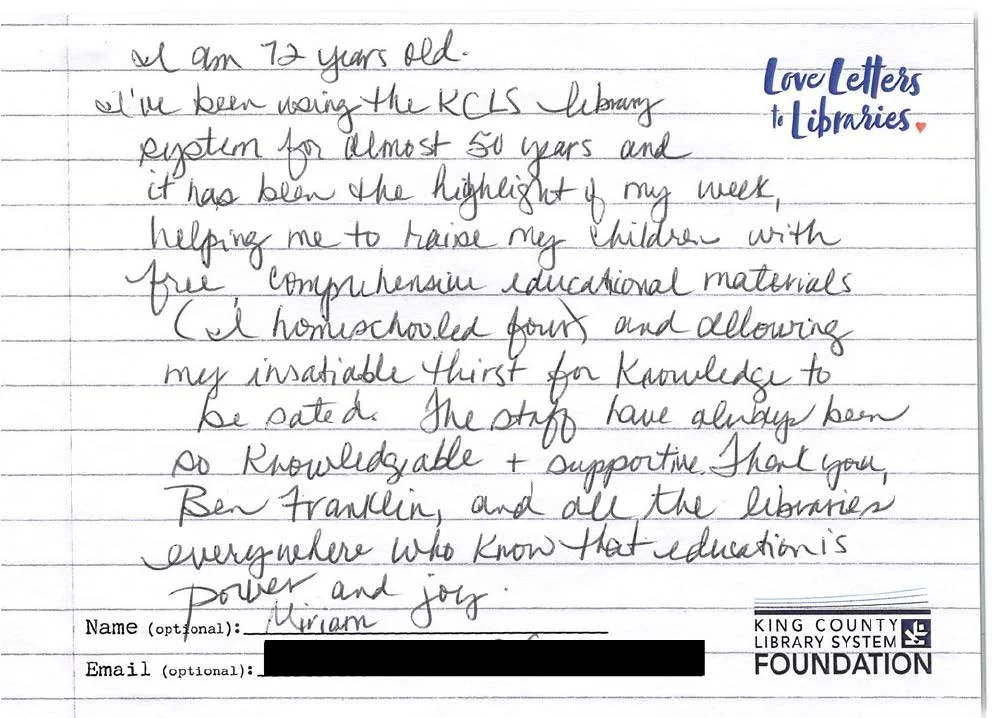 I am 72 years old.
I've been using the KCLS library
system for almost 50 years and
it has been the highlight of my week,
helping me to raise my children with
free, comprehensive educational materials
(I homeschooled four) and allowing
my insatiable thirst for knowledge to
be sated. The staff have always been
so knowledgeable + supportive. Thank you,
Ben Franklin, and all the libraries
everywhere who know that education is
power and joy.
Love Letters
to Libraries.
Name (optional): Miriam
Email (optional):
KING COUNTY
LIBRARY SYSTEM
FOUNDATION